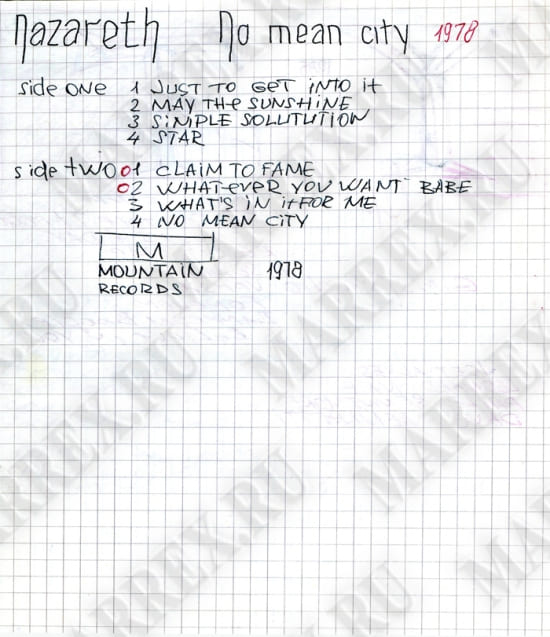 nazareth No mean city 1978
side one 1 JUST TO GET INTO it
2 MAY THE SUNSHINE
3 SIMPLE SOLUTUTION
4 STAR
side two 01 CLAIM TO FAME
02 WHATEVER YOU WANT BABE
3 WHAT'S IN it FOR ME
4 NO MEAN CITY
M
MOUNTAIN 1978
RECORDS
MARREX.RU
MARREX.RU
MARREX.RU
MARREX.RU
MARREX.RU